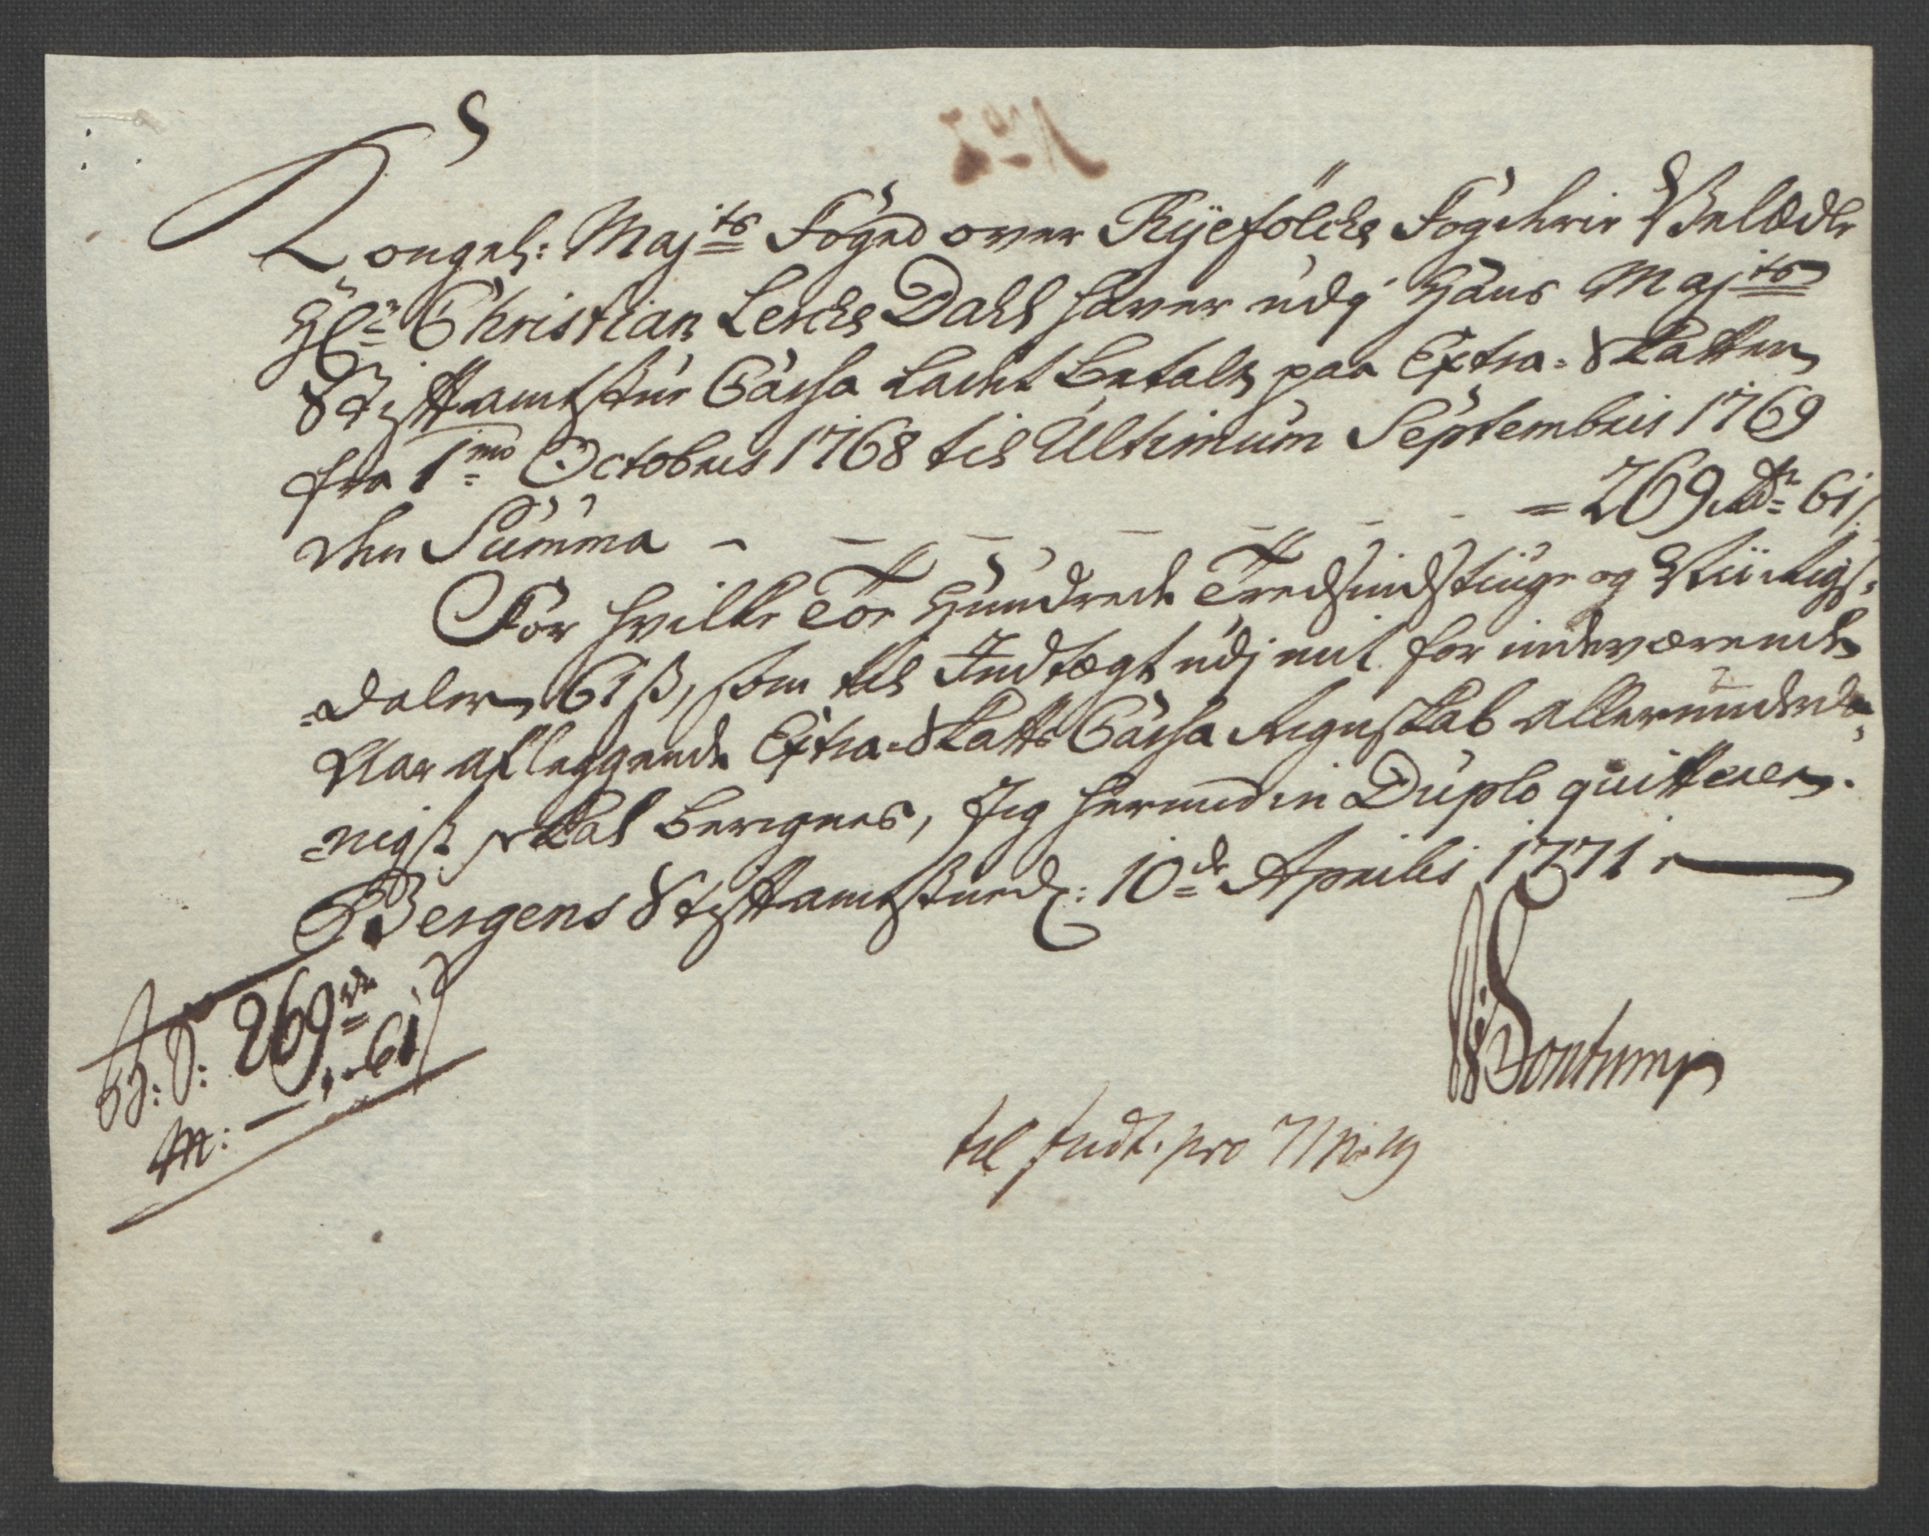 Kongel: Maj:ts Foged over Ryefölcke Fogderie Velædle
Hr. Christian Lercke Dahl haver udj Hans Maj:ts
Stiftamtstue Cassa ladet betale paa Extra-Skatten
fra 1mo Octobris 1768 til Ultimum Septembris 1769
den Summa - - - - - - = 269 Rdr 61 s:
For hvilke Toe Hundrede Tredsindstiuge og Nii Rigs-
-daler 61 ß, som til Indtægt udj mit for indeværende
Aar aflæggende Extra-Skatts Cassa Regnskab allerunderda-
-nigst skal beregnes, Jeg hermed in Duplo quitterer.
Bergens Stiftamtstue d: 10de Aprilis 1771.
269 rdr
61 s
til Indt. pro 71